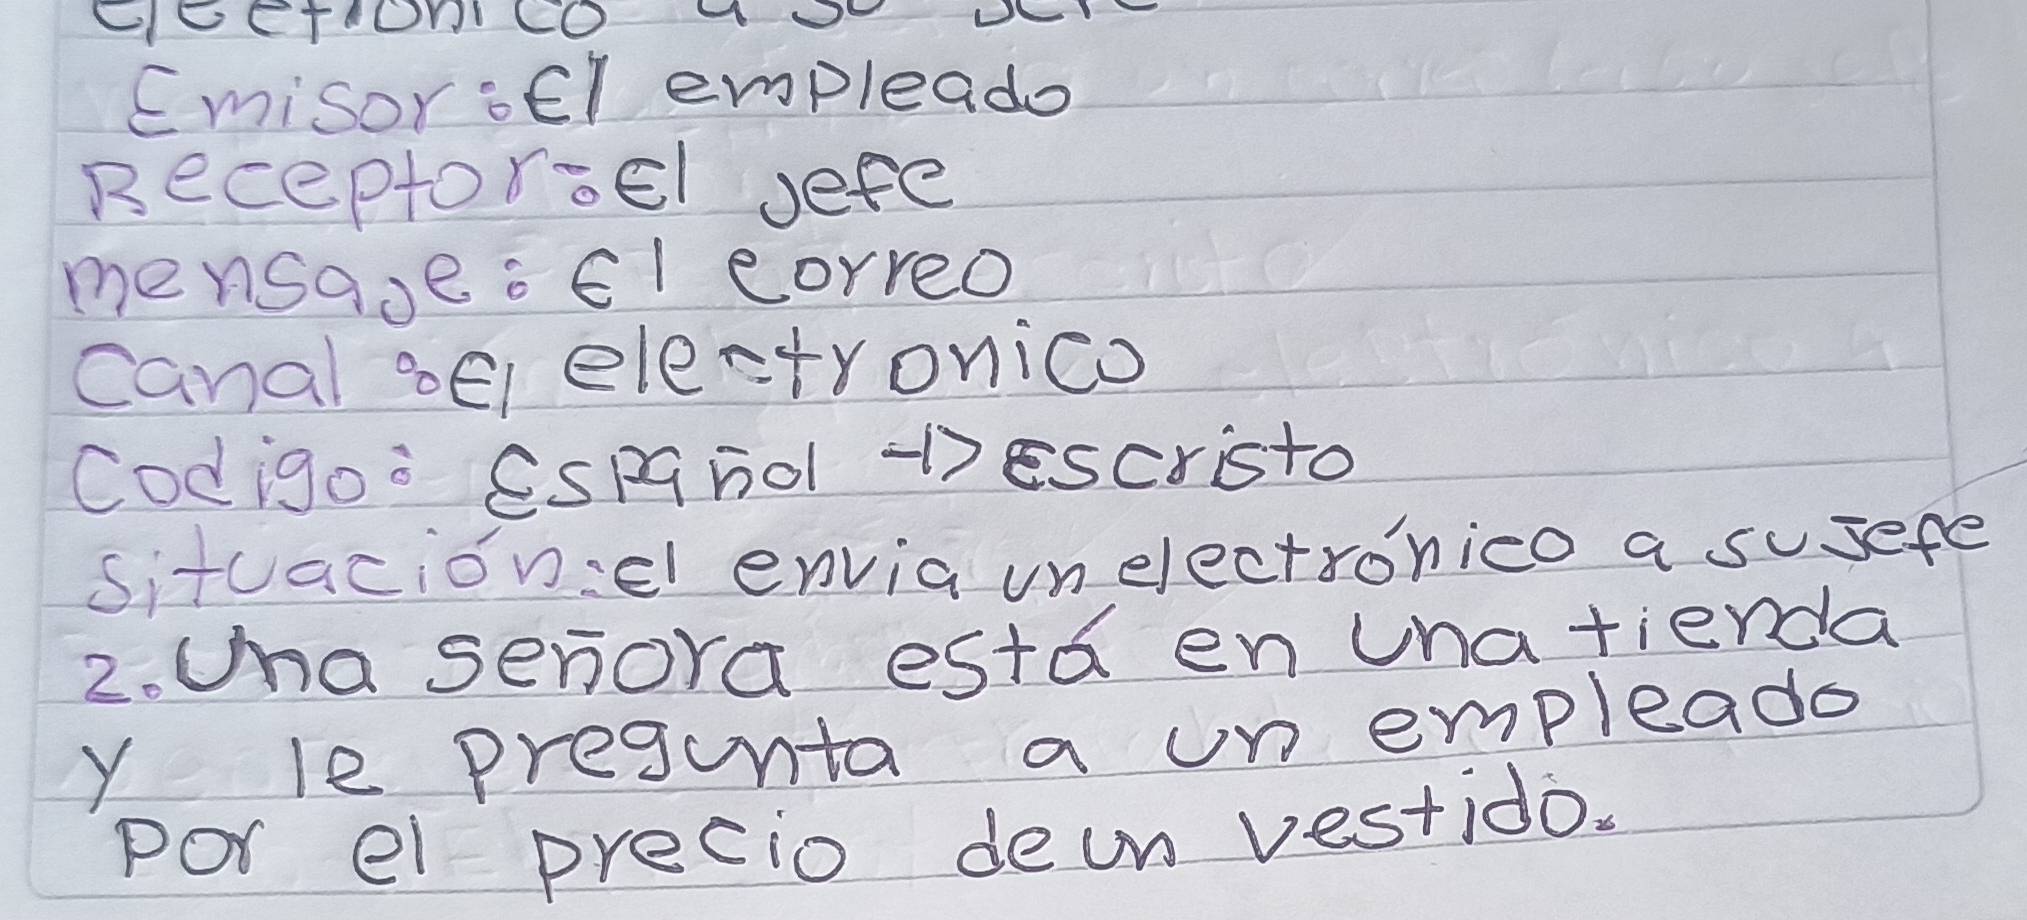 electronico a su jefe
Emisor: El empleado
Receptor: El jefe
mensaje: El correo
Canal: El electronico
Codigo: Español -> Escristo
situación: el envia un electrónico a su Jefe
2. Una señora está en una tienda
y le pregunta a un empleado
por el precio de un vestido.